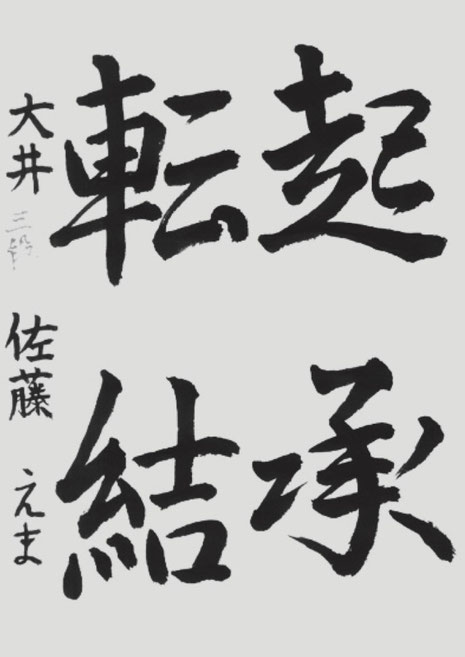 起承
転結
大井 三段 佐藤 えま